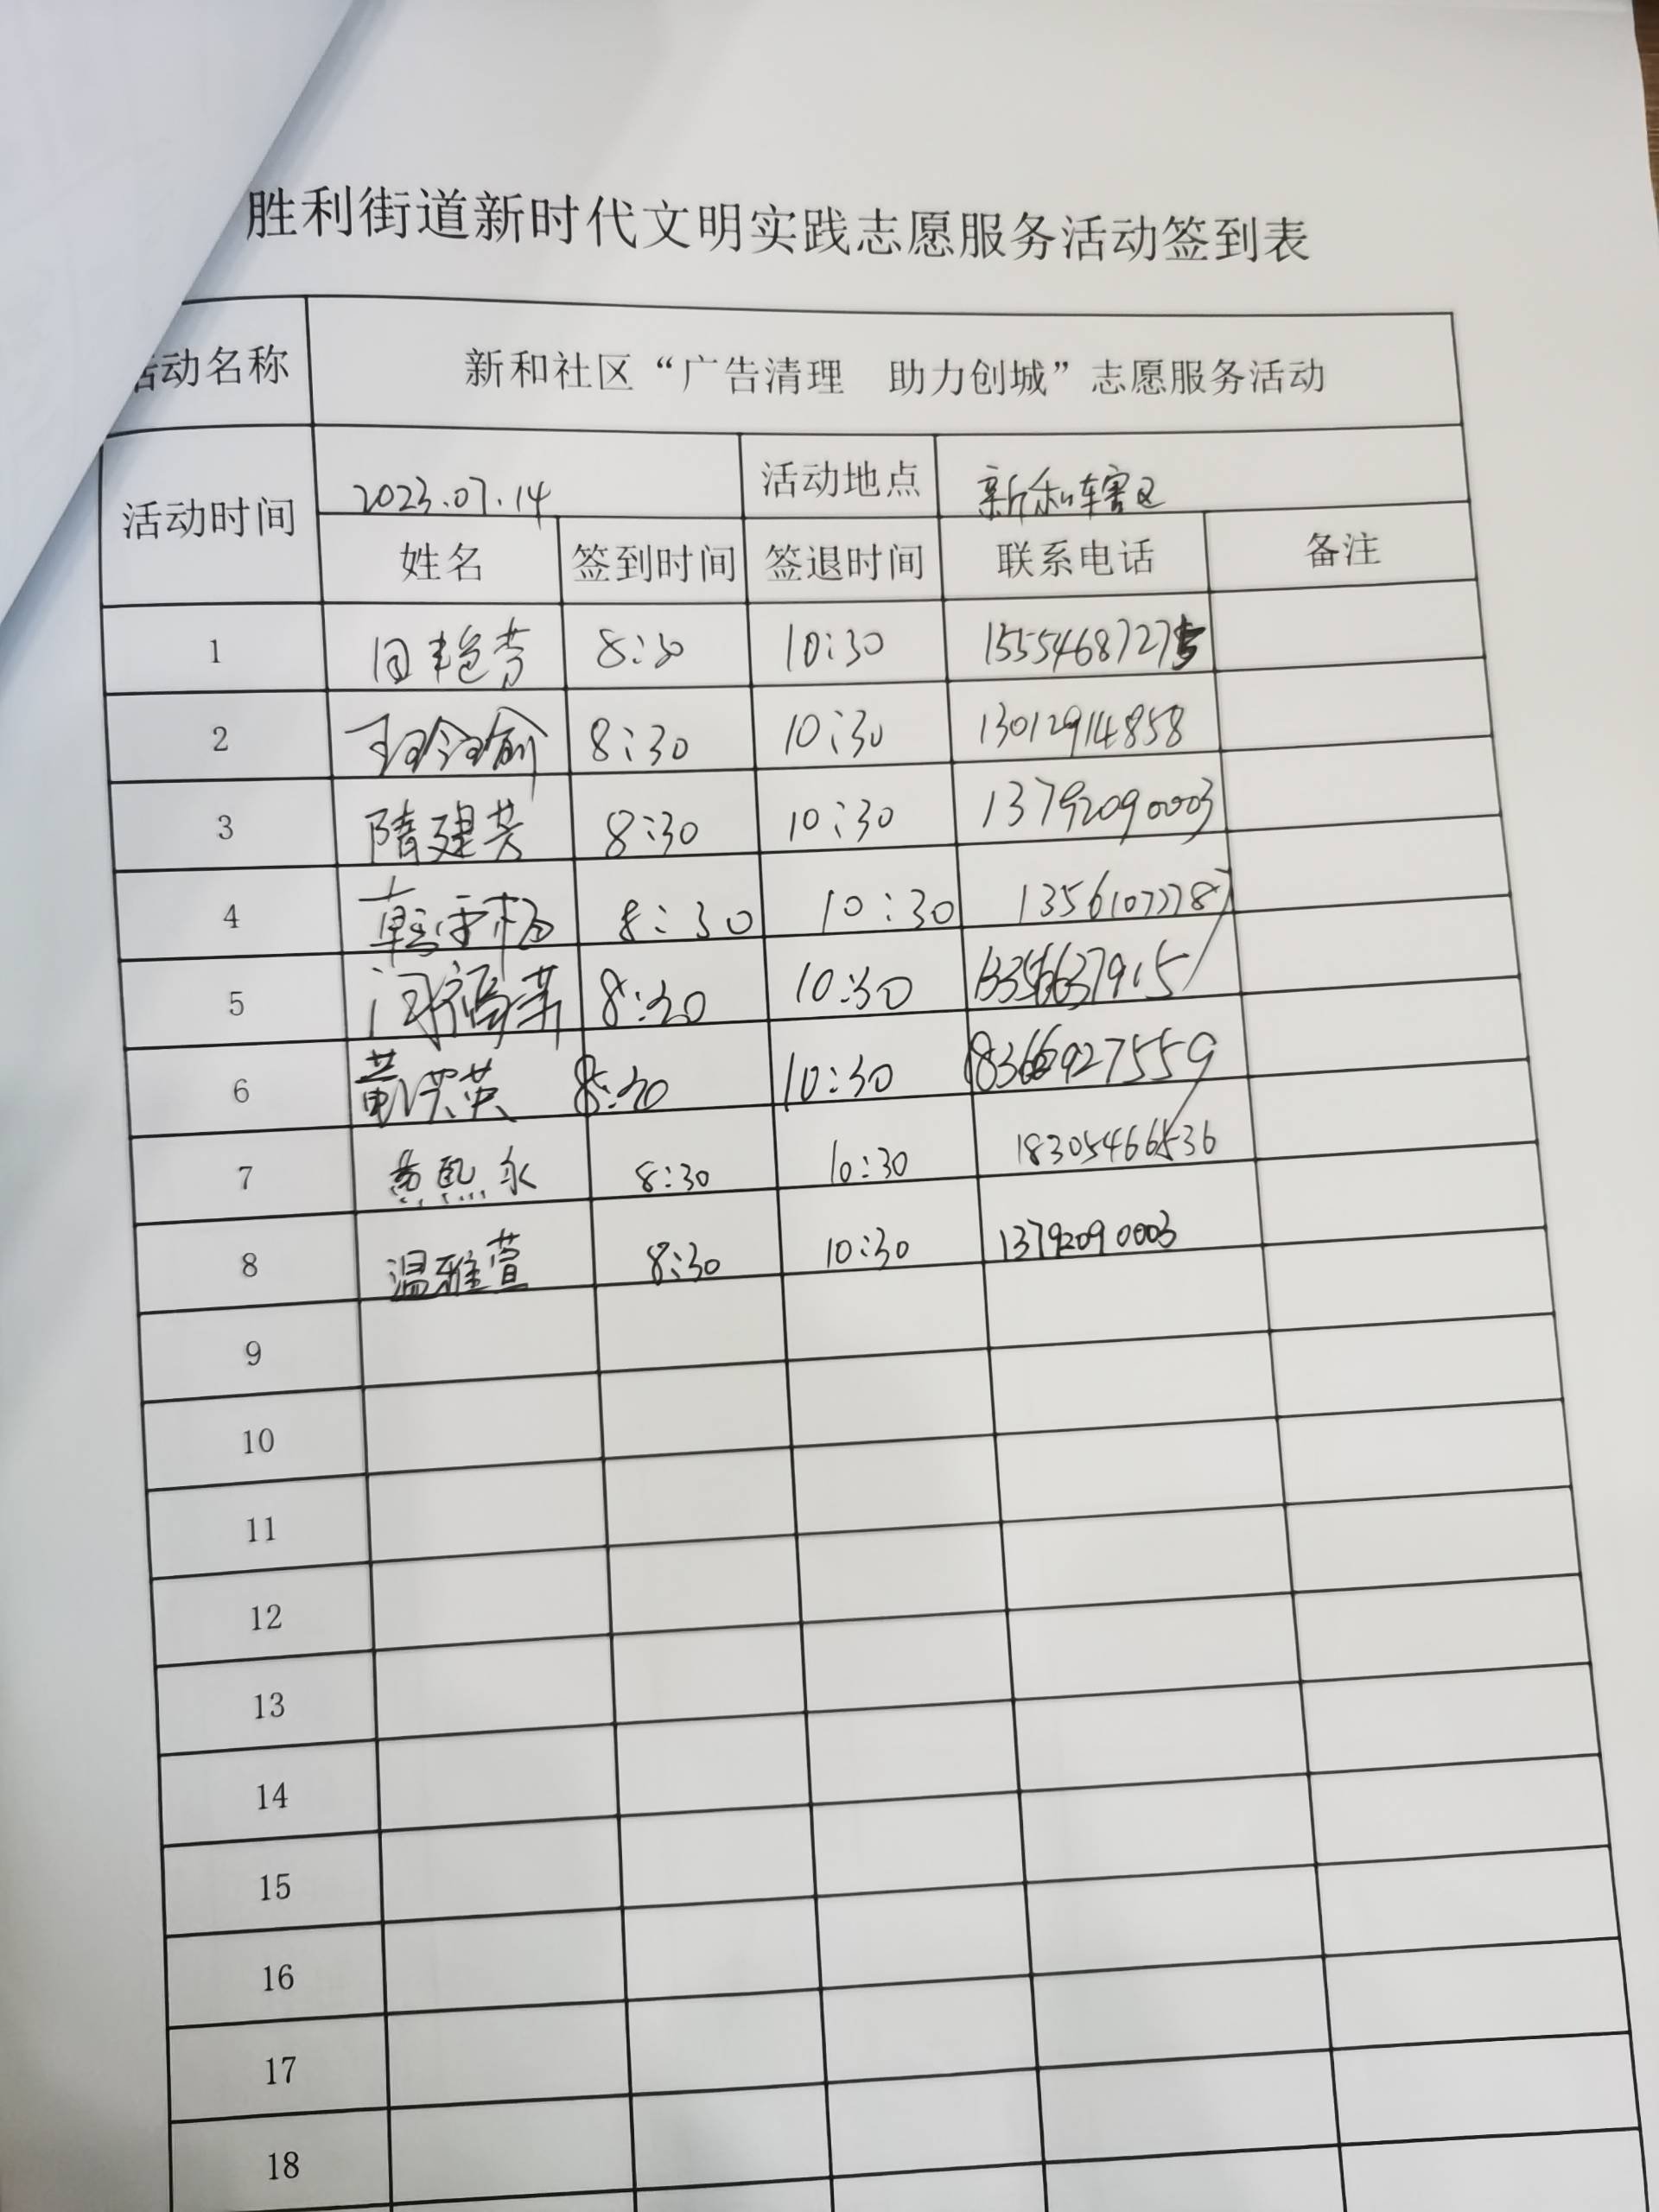 胜利街道新时代文明实践志愿服务活动签到表
活动名称 新和社区“广告清理 助力创城”志愿服务活动
活动时间 2023.07.14 活动地点 新和辖区
姓名 签到时间 签退时间 联系电话 备注
1 田艳芳 8:30 10:30 15554687275
2 8:30 10:30 13012914858
3 隋建芸 8:30 10:30 13792090003
4 8:30 10:30 13561077287
5 8:30 10:30
6 黄荣英 8:30 10:30 18366927559
7 黄熙永 8:30 10:30 18305466536
8 温雅萱 8:30 10:30 13792090003
9
10
11
12
13
14
15
16
17
18